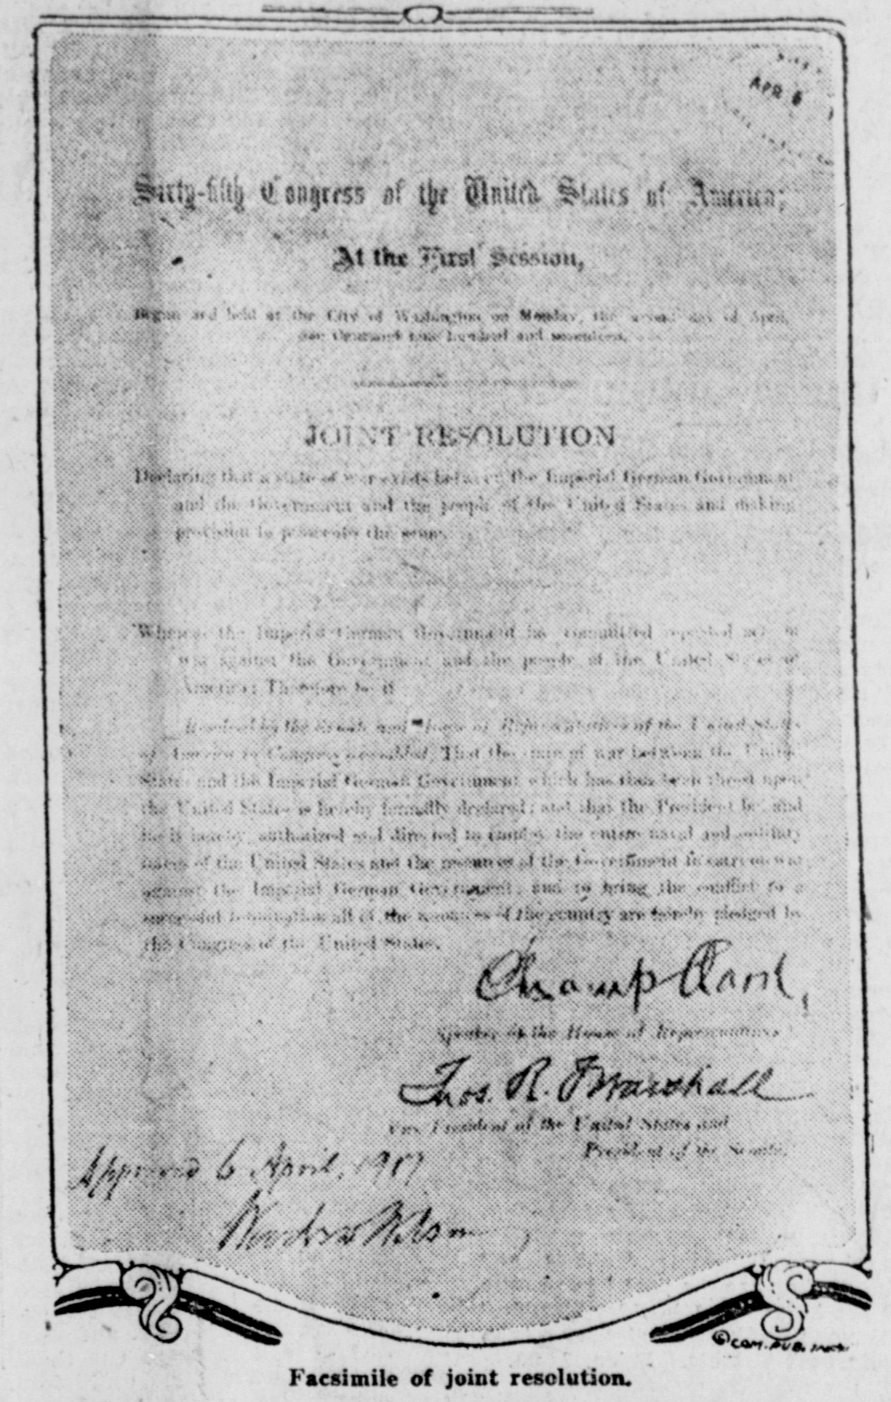 APR 6
Sixty-fifth Congress of the United States of America;
At the First Session,
Begun and held at the City of Washington on Monday, the second day of April,
one thousand nine hundred and seventeen.
JOINT RESOLUTION
Declaring that a state of war exists between the Imperial German Government
and the Government and the people of the United States and making
provision to prosecute the same.
Whereas the Imperial German Government has committed repeated acts of
war against the Government and the people of the United States of
America: Therefore be it
Resolved by the Senate and House of Representatives of the United States
of America in Congress assembled, That the state of war between the United
States and the Imperial German Government which has thus been thrust upon
the United States is hereby formally declared; and that the President be, and
he is hereby, authorized and directed to employ the entire naval and military
forces of the United States and the resources of the Government to carry on war
against the Imperial German Government; and to bring the conflict to a
successful termination all of the resources of the country are hereby pledged by
the Congress of the United States.
Champ Clark,
Speaker of the House of Representatives
Thos. R. Marshall
Vice President of the United States and
President of the Senate.
Approved 6 April, 1917
Woodrow Wilson
© COM. PUB.
Facsimile of joint resolution.